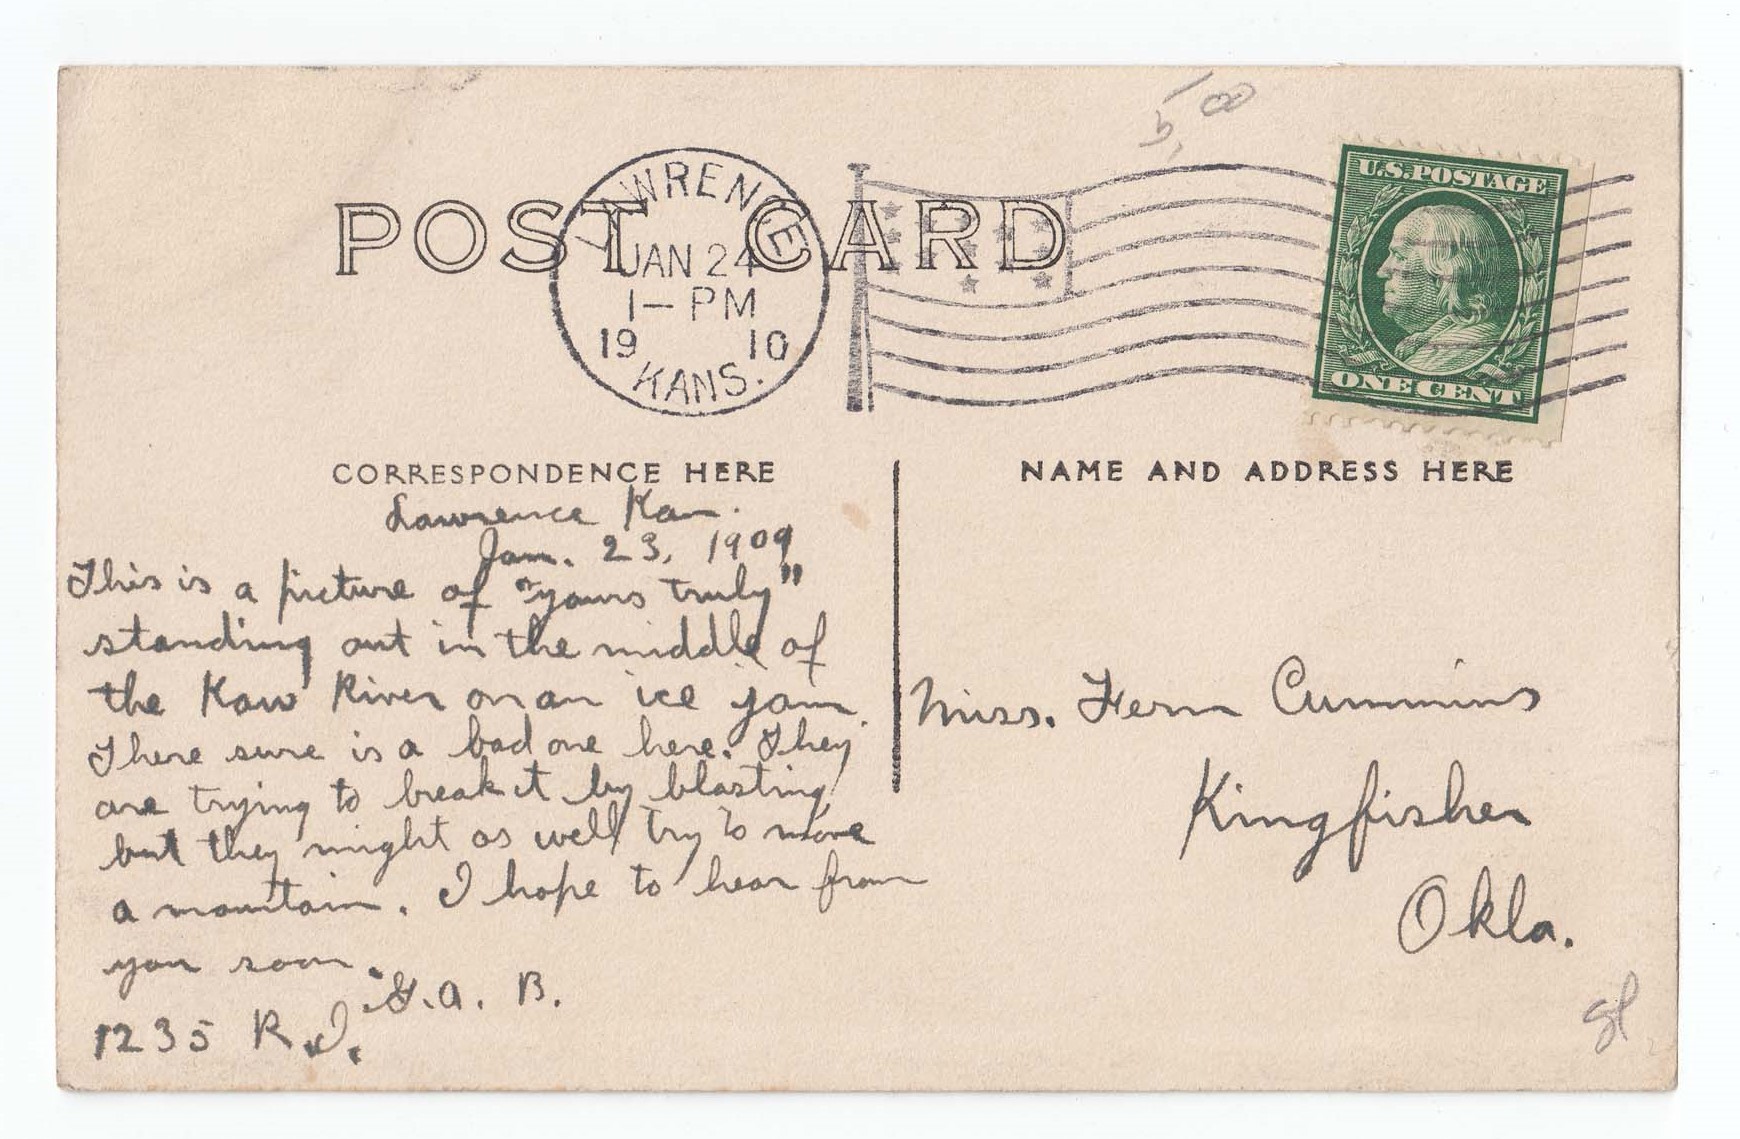 5,00
POST CARD
LAWRENCE
JAN 24
1-PM
19 10
KANS.
U.S. POSTAGE
ONE CENT
CORRESPONDENCE HERE
NAME AND ADDRESS HERE
Lawrence Kan.
Jan. 23, 1909
This is a picture of "yours truly"
standing out in the middle of
the Kaw River on an ice jam.
There sure is a bad one here. They
are trying to break it by blasting
but they might as well try to move
a mountain. I hope to hear from
you soon.
G.A. B.
1235 R.I.
Miss. Fern Cummins
Kingfisher
Okla.